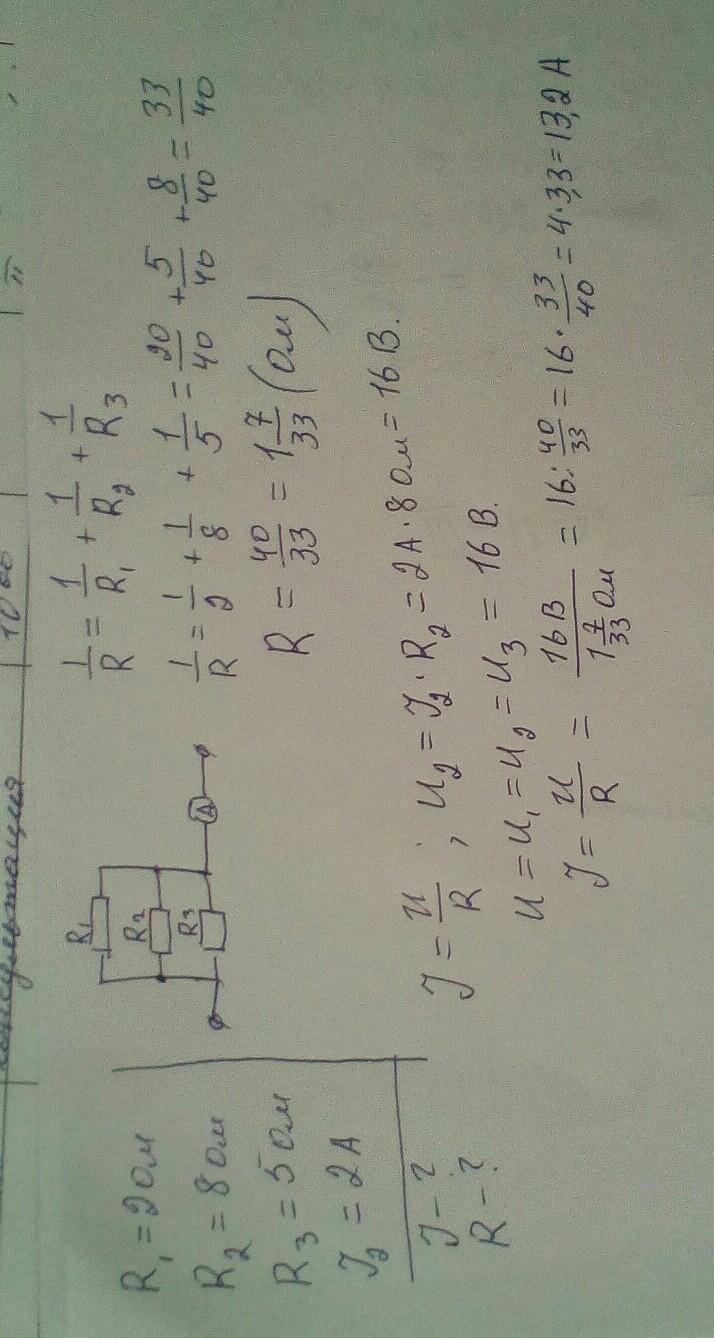 R₁ = 2 Ом
R₂ = 8 Ом
R₃ = 5 Ом
J₂ = 2 А
J - ?
R - ?
R₁
R₂
R₃
A
1/R = 1/R₁ + 1/R₂ + 1/R₃
1/R = 1/2 + 1/8 + 1/5 = 20/40 + 5/40 + 8/40 = 33/40
R = 40/33 = 1 7/33 (Ом)
J = U/R ; U₂ = J₂ · R₂ = 2А · 8 Ом = 16 В.
U = U₁ = U₂ = U₃ = 16 В.
J = U/R = 16 В / 1 7/33 Ом = 16 : 40/33 = 16 · 33/40 = 4 · 3,3 = 13,2 А